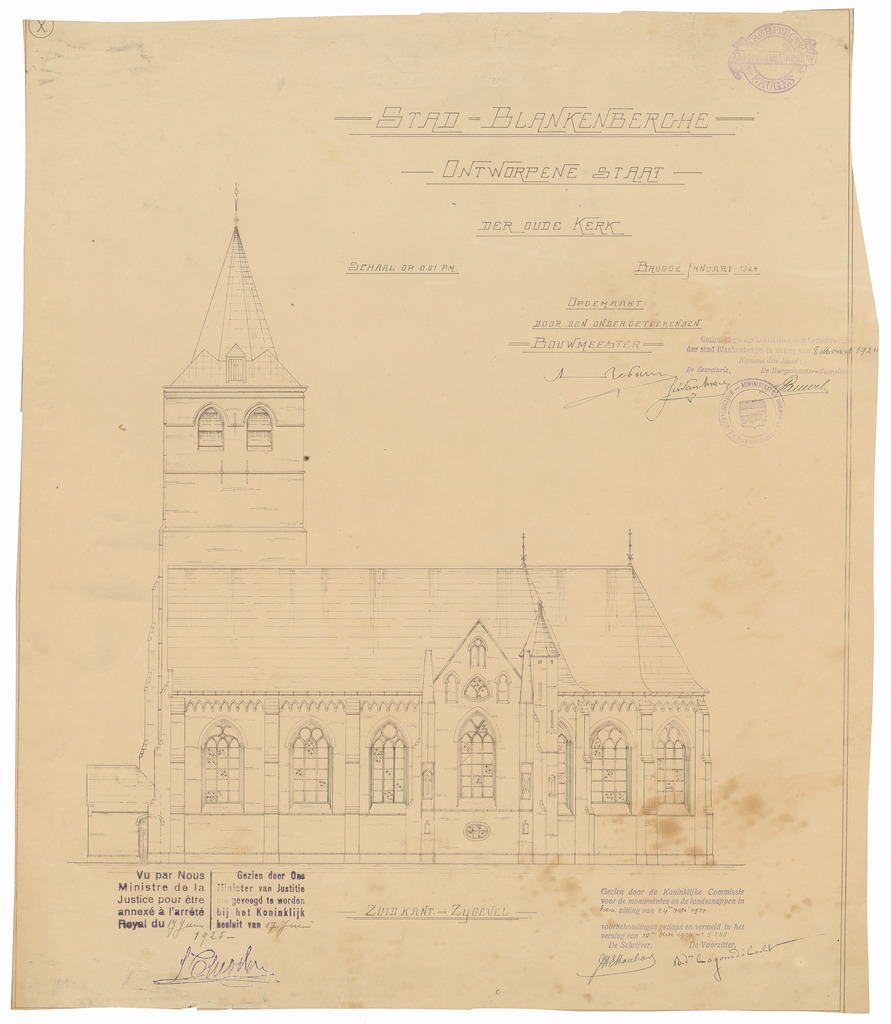 X
ARCHITECTE
BRUGES
STAD - BLANKENBERGHE
ONTWORPENE STAAT
DER OUDE KERK
SCHAAL OP 0.01 P.M.
BRUGGE JANUARI - 1924
OPGEMAAKT
DOOR DEN ONDERGETEEKENDEN
BOUWMEESTER
Gezien en goedgekeurd door den Gemeenteraad
der stad Blankenberge in zitting van 8 Maart 1924
De Secretaris, De Burgemeester-Voorzitter
Vu par Nous
Ministre de la
Justice pour être
annexé à l'arrêté
Royal du 17 Juin
1925
Gezien door Ons
Minister van Justitie
om gevoegd te worden
bij het Koninklijk
besluit van 17 Juni
ZUID KANT - ZIJGEVEL
Gezien door de Koninklijke Commissie
voor de monumenten en de landschappen in
hare zitting van
voorbehoudingen gedaan en vermeld in het
verslag van
De Schrijver, De Voorzitter,